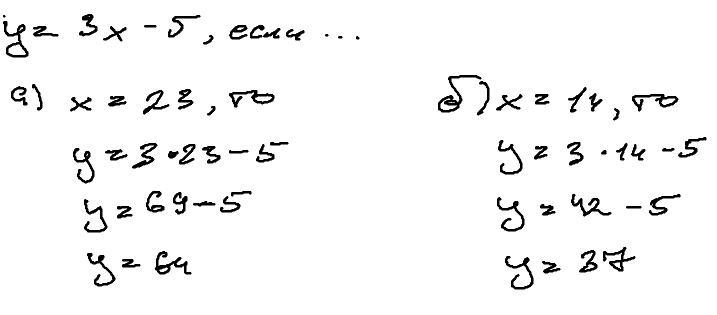 y = 3x - 5, если ...
а) x = 23, то
y = 3·23 - 5
y = 69 - 5
y = 64
б) x = 14, то
y = 3·14 - 5
y = 42 - 5
y = 37